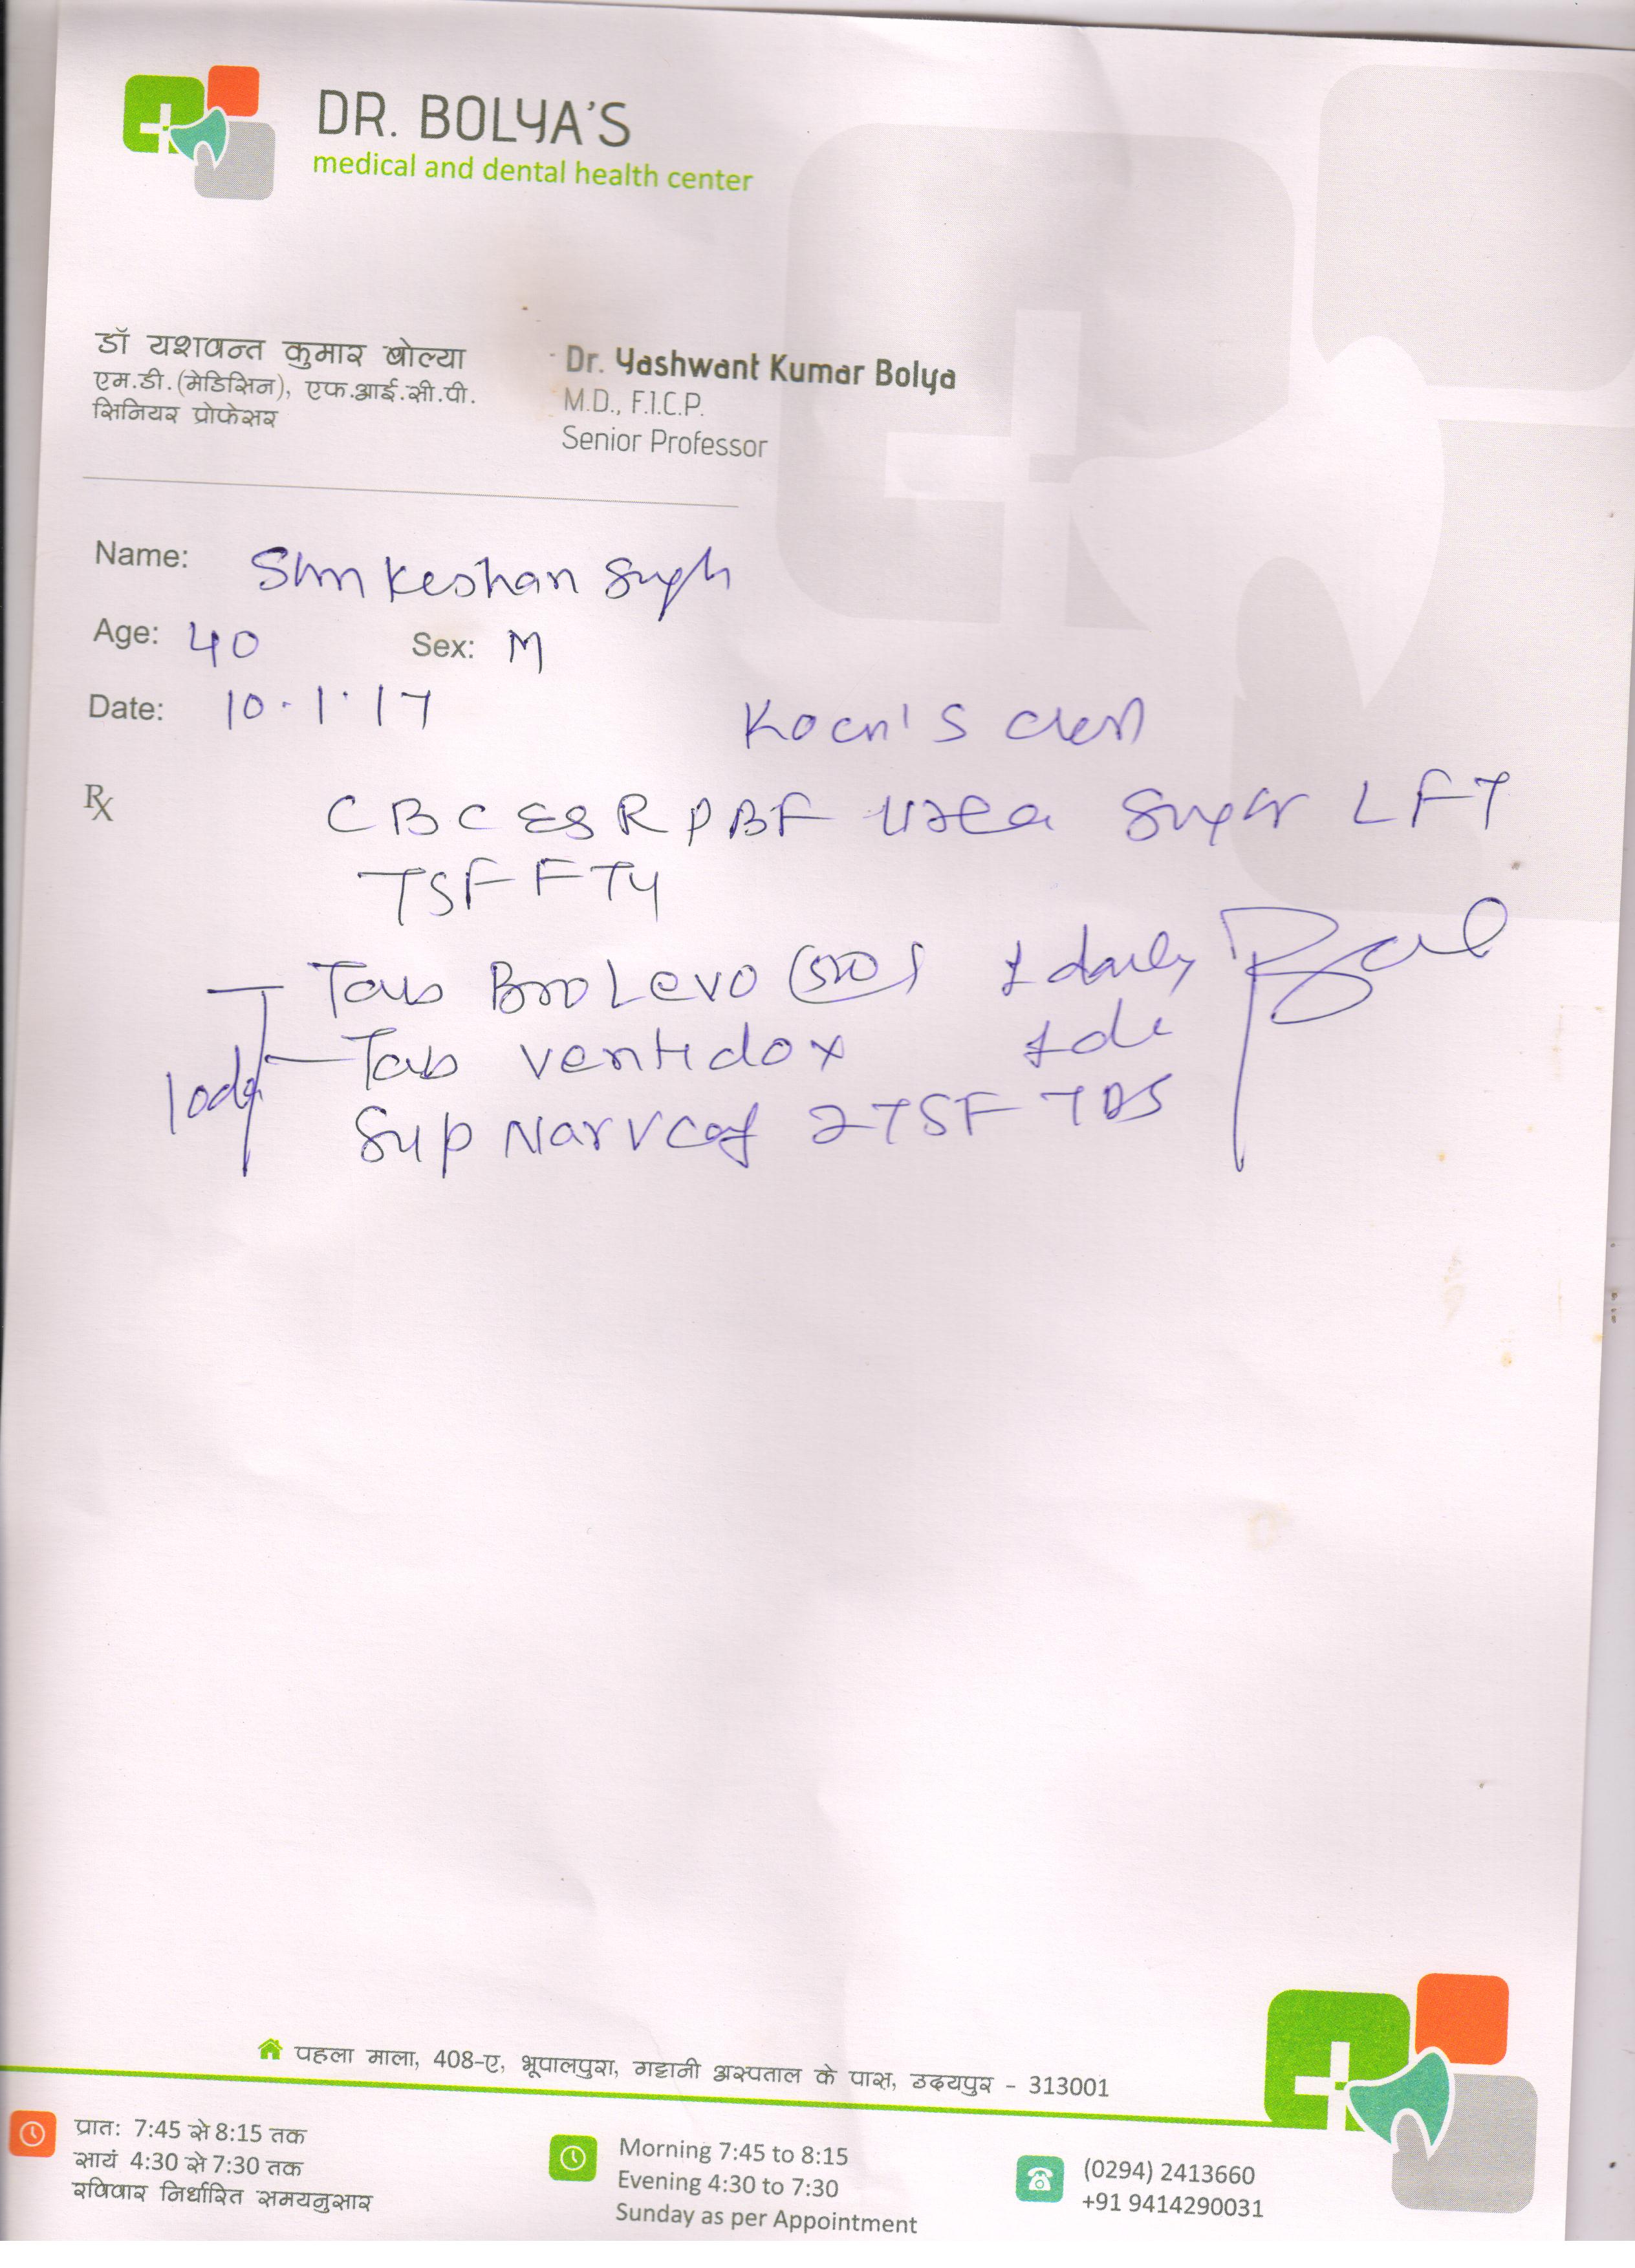 DR. BOLYA'S
medical and dental health center
डॉ यशवन्त कुमार बोल्या
एम.डी.(मेडिसिन), एफ.आई.सी.पी.
सिनियर प्रोफेसर
Dr. Yashwant Kumar Bolya
M.D., F.I.C.P.
Senior Professor
Name: Keshan
Age: 40 Sex: M
Date: 10.1.17
Koch's
Rx CBC ESR PBF Urea Sugar LFT
TSF FTY
Tab Levo (500) 1 daily
Tab Ventidox
Syp 2 TSF TDS
पहला माला, 408-ए, भूपालपुरा, गट्टानी अस्पताल के पास, उदयपुर - 313001
प्रात: 7:45 से 8:15 तक
सायं 4:30 से 7:30 तक
रविवार निर्धारित समयनुसार
Morning 7:45 to 8:15
Evening 4:30 to 7:30
Sunday as per Appointment
(0294) 2413660
+91 9414290031